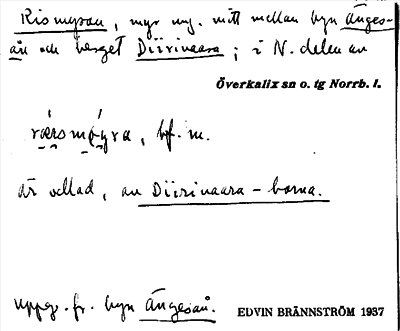 Rismyran, myr ung. mitt mellan byn Änges-
ån och berget Diirivaara; i N. delen av
Överkalix sn o. tg Norrb. l.
ræ̀rsmøyra, bf. m.
är odlad, av Diirivaara-borna.
uppg. fr. byn Ängesån.
EDVIN BRÄNNSTRÖM 1937